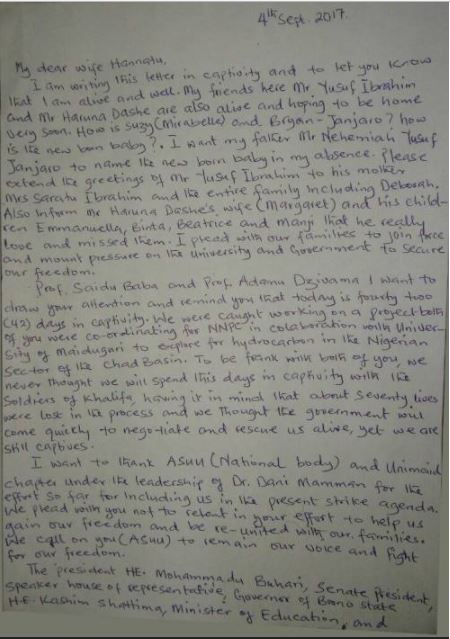 4th Sept. 2017.
My dear wife Hannatu,
I am writing this letter in captivity and to let you know
that I am alive and well. My friends here Mr. Yusuf Ibrahim
and Mr Haruna Dashe are also alive and hoping to be home
very soon. How is Suzy (Mirabelle) and Bryan-Janjaro? how
is the new born baby?. I want my father Mr Nehemiah Yusuf
Janjaro to name the new born baby in my absence. Please
extend the greetings of Mr Yusuf Ibrahim to his mother
Mrs Saratu Ibrahim and the entire family including Deborah.
Also inform Mr Haruna Dashe's wife (Margaret) and his child-
ren Emmanuella, Binta, Beatrice and Manji that he really
love and missed them. I plead with our families to join force
and mount pressure on the University and Government to secure
our freedom.
Prof. Saidu Baba and Prof. Adamu Dzivama I want to
draw your attention and remind you that today is fourty two
(42) days in captivity. We were caught working on a project both
of you were co-ordinating for NNPC in colaboration with Univer-
sity of Maiduguri to explore for hydrocarbon in the Nigerian
Sector of the Chad Basin. To be frank with both of you, we
never thought we will spend this days in captivity with the
Soldiers of Khalifa, having it in mind that about seventy lives
were lost in the process and we thought the government will
come quickly to negotiate and rescue us alive, yet we are
still captives.
I want to thank ASUU (National body) and Unimaid
chapter under the leadership of Dr. Dani Mamman for the
effort so far for including us in the present strike agenda.
We plead with you not to relent in your effort to help us
gain our freedom and be re-united with our families.
We call on you (ASUU) to remain our voice and fight
for our freedom.
The president HE. Mohammadu Buhari, Senate President,
speaker house of representative, Governor of Borno state
H.E. Kashim Shattima, Minister of Education, and